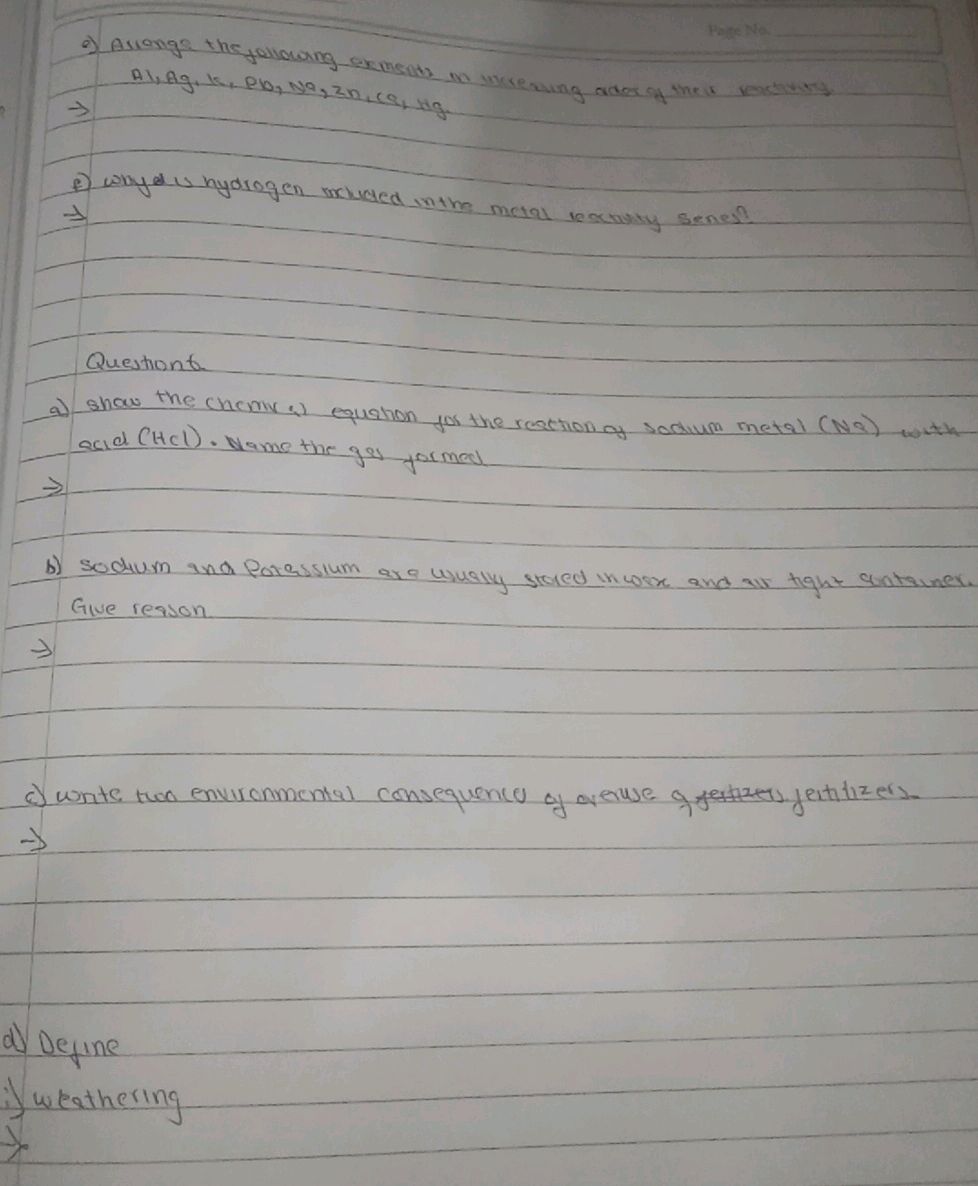 Page No.
e) Arrange the following elements in increasing order of their reactivity
Al, Ag, K, Pb, Na, Zn, Ca, Hg.
→
e) why is hydrogen included in the metal reactivity series?
→
Question 6
a) show the chemical equation for the reaction of sodium metal (Na) with
acid (HCl). Name the gas formed
→
b) sodium and Potassium are usually stored in wax and air tight container.
Give reason
→
c) write two environmental consequence of overuse of fertilizers.
→
d) Define
i) weathering
→